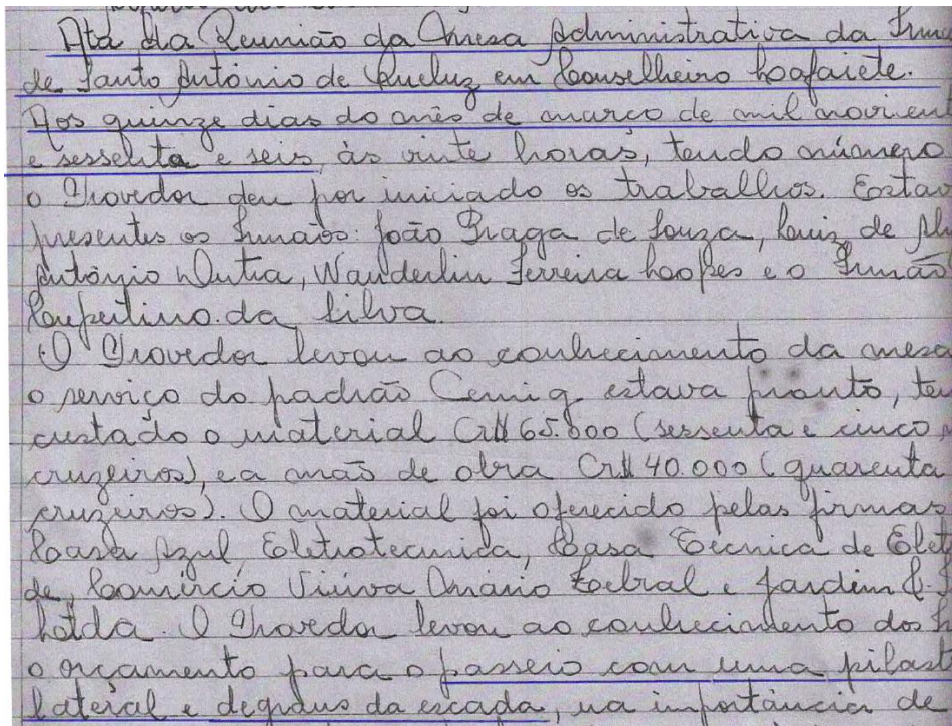 Ata da Reunião da Mesa Administrativa da Irman
de Santo Antônio de Queluz em Conselheiro Lafaiete.
Aos quinze dias do mês de março de mil novicen
e sessenta e seis, às vinte horas, tendo número
o Provedor deu por iniciado os trabalhos. Estav
presentes os Irmãos: João Braga de Souza, Luiz de Alm
Antônio Dutra, Wanderlin Ferreira Lopes e o Irmão
Cupertino da Silva.
O Provedor levou ao conhecimento da mesa
o serviço do padrão Cemig estava pronto, ten
custado o material Cr$ 65.000 (sessenta e cinco m
cruzeiros), e a mão de obra Cr$ 40.000 (quarenta
cruzeiros). O material foi oferecido pelas firmas
Casa Azul, Eletrotecnica, Casa Tecnica de Elet
de, Comércio Viúva Mário Zebral e Jardim &
Ltda. O Provedor levou ao conhecimento dos
o orçamento para o passeio com uma pilast
lateral e degraus da escada, na importância de